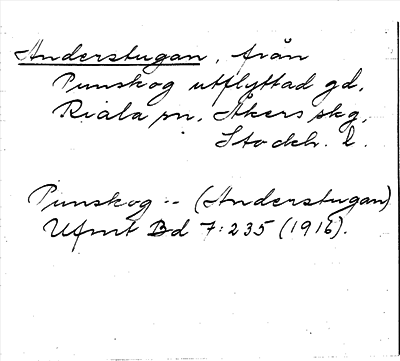 Anderstugan, från
Punskog utflyttad gd,
Riala sn, Åkers skg,
Stockh. l.
Punskog -- (Anderstugan)
Ufmt Bd 7:235 (1916).